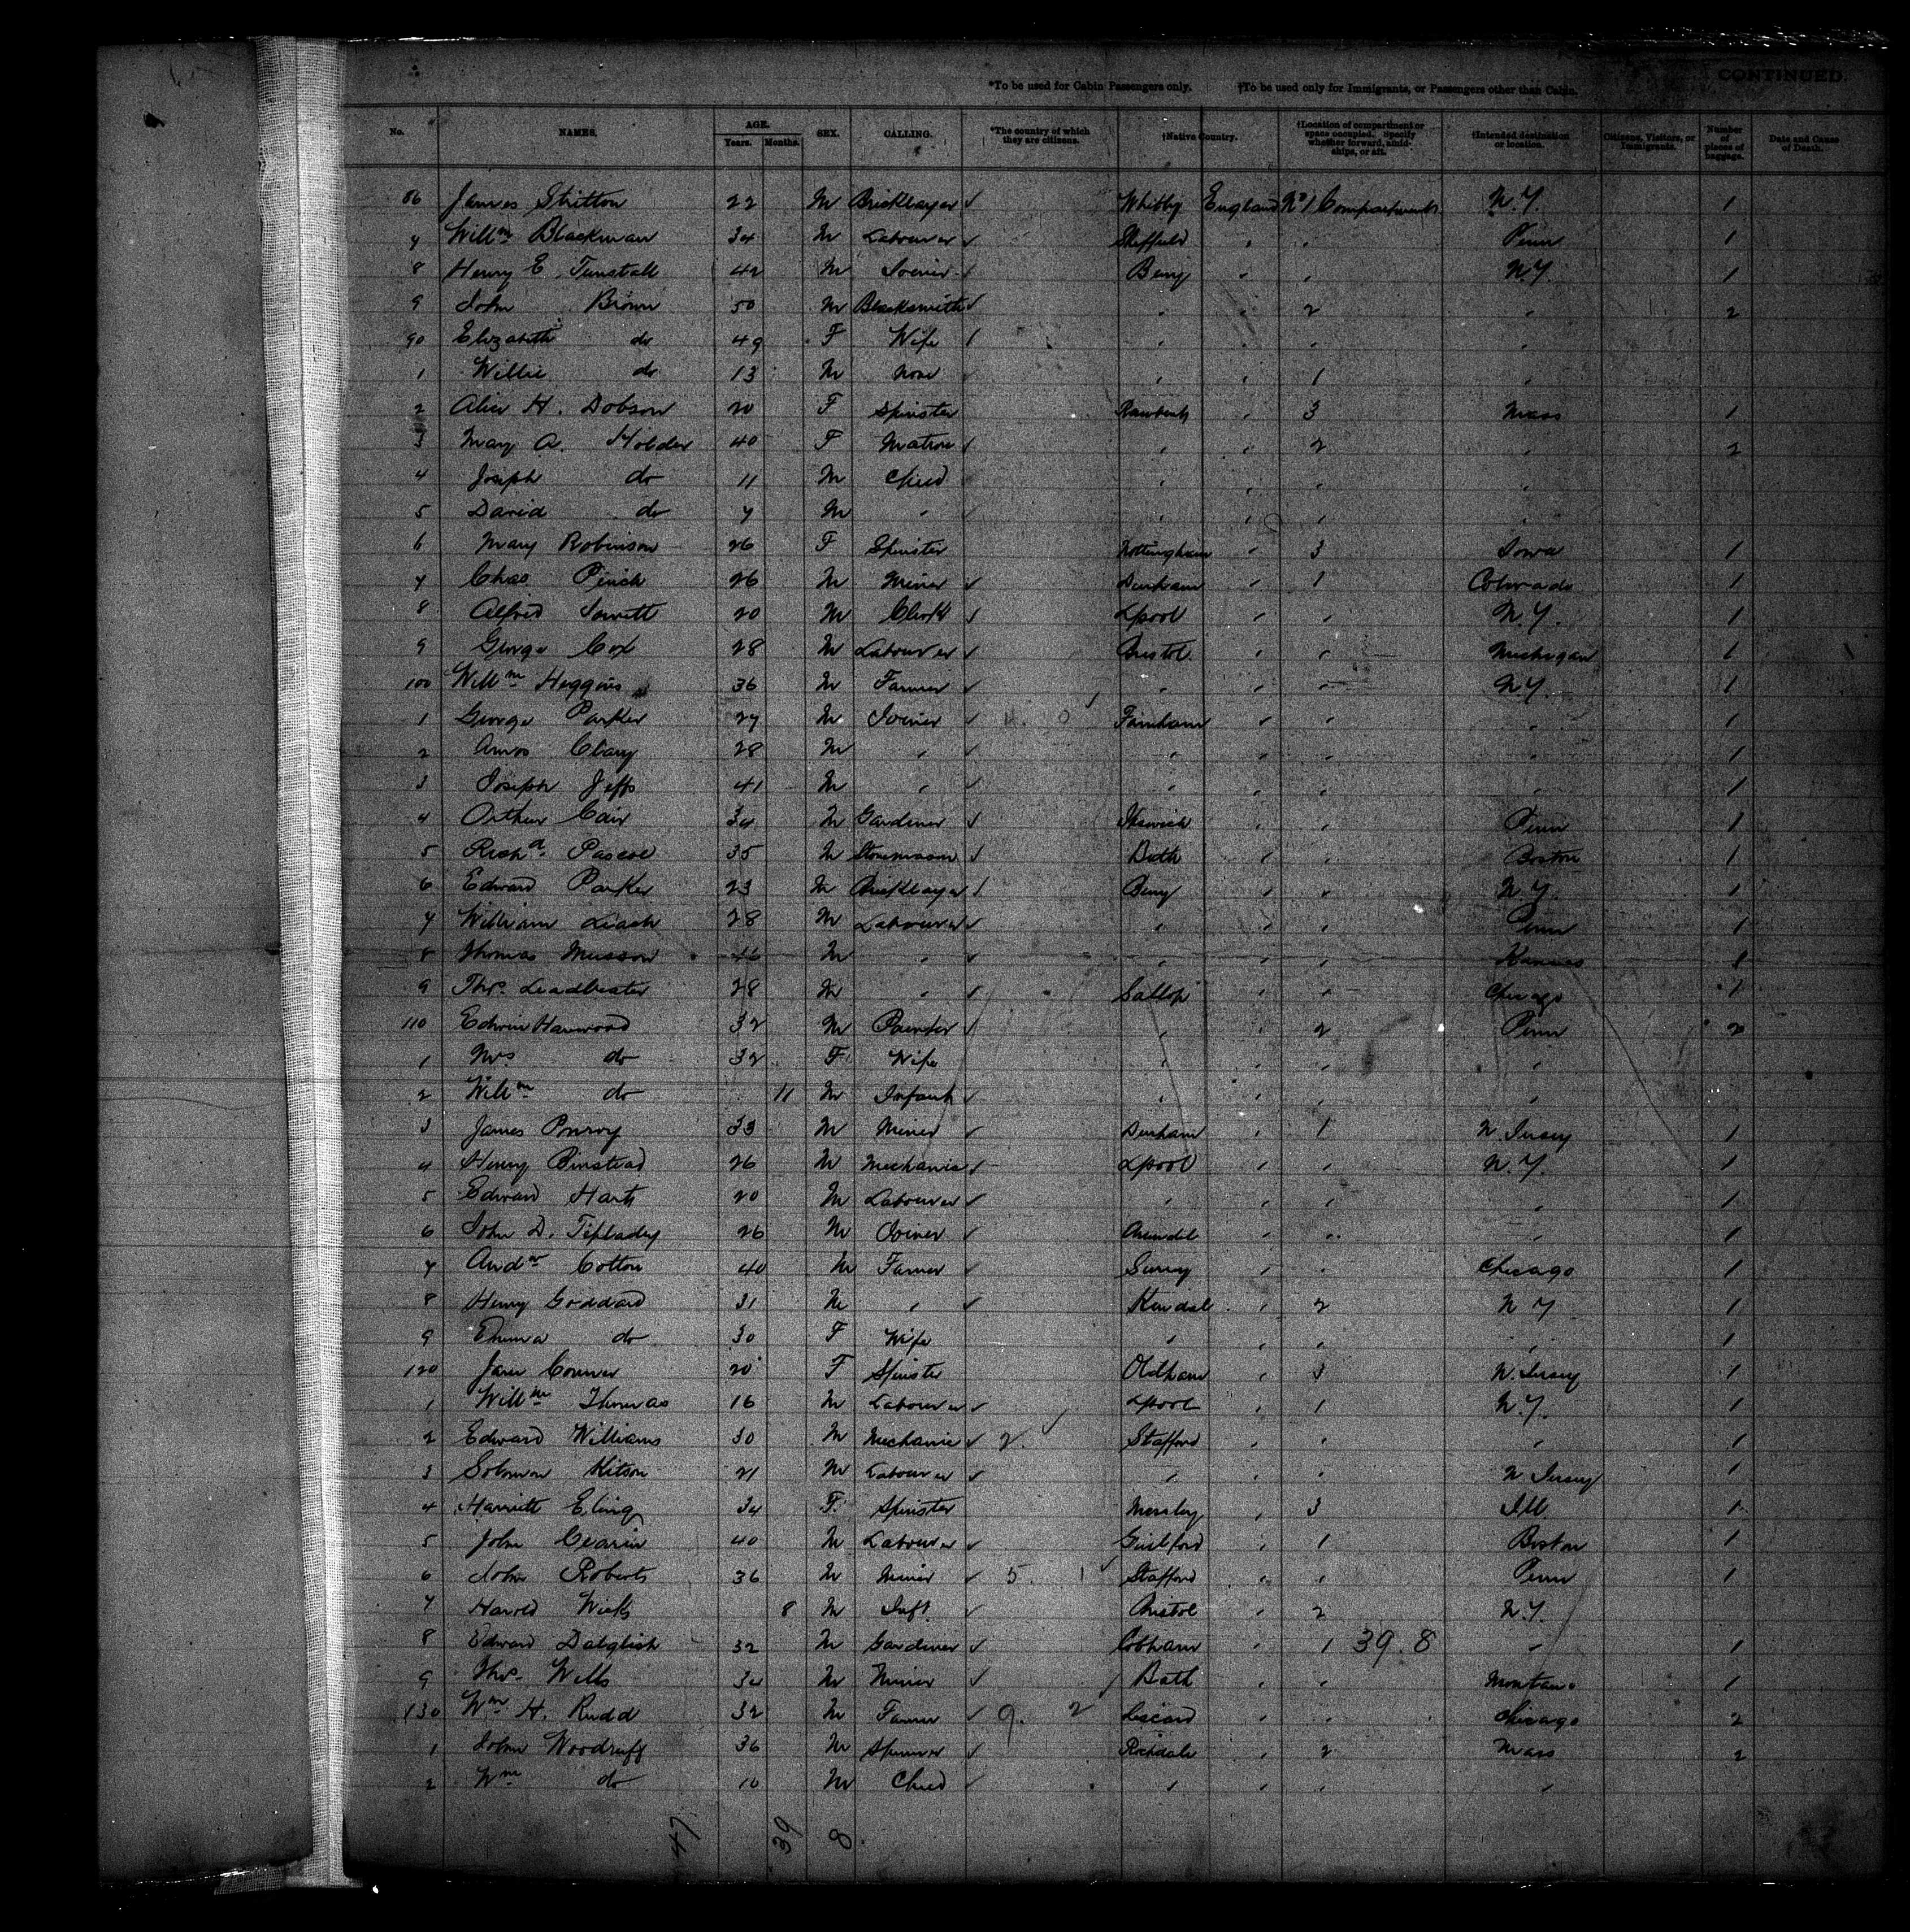 CONTINUED.
*To be used for Cabin Passengers only. †To be used only for Immigrants, or Passengers other than Cabin.
No. NAMES. AGE. Years. Months. SEX. CALLING. *The country of which they are citizens. †Native Country. †Location of compartment or space occupied. Specify whether forward, amidships, or aft. †Intended destination or location. Citizens, Visitors, or Immigrants. Number of pieces of baggage. Date and Cause of Death.
86 James Stritton 22 M Bricklayer Whitby England No 1 Compartment N.Y. 1
7 Willm Blackman 34 M Labourer Sheffield " " Penn 1
8 Henry E. Tunstall 42 M Joiner Bury " " N.Y. 1
9 John Brown 50 M Blacksmith " " 2 " 2
90 Elizabeth do 49 F Wife " " "
1 Willie do 13 M None " " 1 "
2 Alice H. Dobson 20 F Spinster " 3 Mass 1
3 Mary A. Holder 40 F Matron " " 2 " 2
4 Joseph do 11 M Child " " " "
5 David do 7 M " " " " "
6 Mary Robinson 26 F Spinster Nottingham " 3 Iowa 1
7 Chas Pinch 26 M Miner Durham " 1 Colorado 1
8 Alfred Jowett 20 M Clerk Lpool " " N.Y. 1
9 George Cox 28 M Labourer Bristol " " Michigan 1
100 Willm Heggins 36 M Farmer " " " N.Y. 1
1 George Parker 27 M Joiner Farnham " " " 1
2 Amos Clary 28 M " " " " " 1
3 Joseph Jeffs 41 M " " " " " 1
4 Arthur Cair 34 M Gardener Ipswich " " Penn 1
5 Richd Pascoe 35 M Stonemason Bath " " Boston 1
6 Edward Parker 23 M Bricklayer Bury " " N.Y. 1
7 William Leach 28 M Labourer " " " Penn 1
8 Thomas Musson 46 M " " " " Kansas 1
9 Thos Leadbeater 28 M " Sallop " " Chicago 1
110 Edwin Harwood 32 M Painter " " 2 Penn 2
1 Mrs do 32 F Wife " " " "
2 Willm do 11 M Infant " " " "
3 James Pomroy 33 M Miner Durham " 1 N. Jersey 1
4 Henry Binstead 26 M Mechanic Lpool " " N.Y. 1
5 Edward Hart 20 M Labourer " " " " 1
6 John D. Tiplady 26 M Joiner Arundel " " " 1
7 Andw Cotton 40 M Farmer Surrey " " Chicago 1
8 Henry Goddard 31 M " Kendal " 2 N Y 1
9 Emma do 30 F Wife " " " " 1
120 Jane Connor 20 F Spinster Oldham " 3 N. Jersey 1
1 Willm Thomas 16 M Labourer Lpool " 1 N.Y. 1
2 Edward Williams 30 M Mechanic 2 Stafford " " " 1
3 Solomon Kitson 21 M Labourer " " " N Jersey 1
4 Harriett Eling 34 F Spinster " 3 Ill. 1
5 John 40 M Labourer Guilford " 1 Boston 1
6 John Roberts 36 M Miner 5. 1 Stafford " " Penn 1
7 Harold Wicks 8 M Inft. Bristol " 2 N.Y.
8 Edward Dalglish 32 M Gardener Cobham " 1 39. 8 " 1
9 Thos Wells 34 M Miner Bath " " Montana 1
130 Wm H. Rudd 32 M Farmer 9. 2 Liscard " " Chicago 2
1 John Woodruff 36 M Spinner Rochdale " 2 Mass 2
2 Wm do 10 M Child " " " "
47 39 8